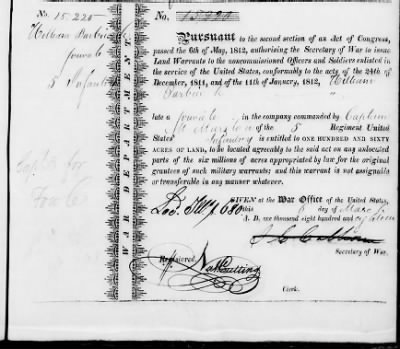 No. 15.225
William
5 Infantry
WAR DEPARTMENT.
No. 15.220
Pursuant to the second section of an Act of Congress,
passed the 6th of May, 1812, authorising the Secretary of War to issue
Land Warrants to the noncommissioned Officers and Soldiers enlisted in
the service of the United States, conformably to the acts of the 24th of
December, 1811, and of the 11th of January, 1812, William
late a private in the company commanded by Captain
of the 5 Regiment United
States Infantry is entitled to ONE HUNDRED AND SIXTY
ACRES OF LAND, to be located agreeably to the said act on any unlocated
part of the six millions of acres appropriated by law for the original
grantees of such military warrants; and this warrant is not assignable
or transferable in any manner whatever.
GIVEN at the War Office of the United States,
this 6 day of
A. D. one thousand eight hundred and eighteen
J C Calhoun
Secretary of War.
Registered,
Nat Cutting
Clerk.